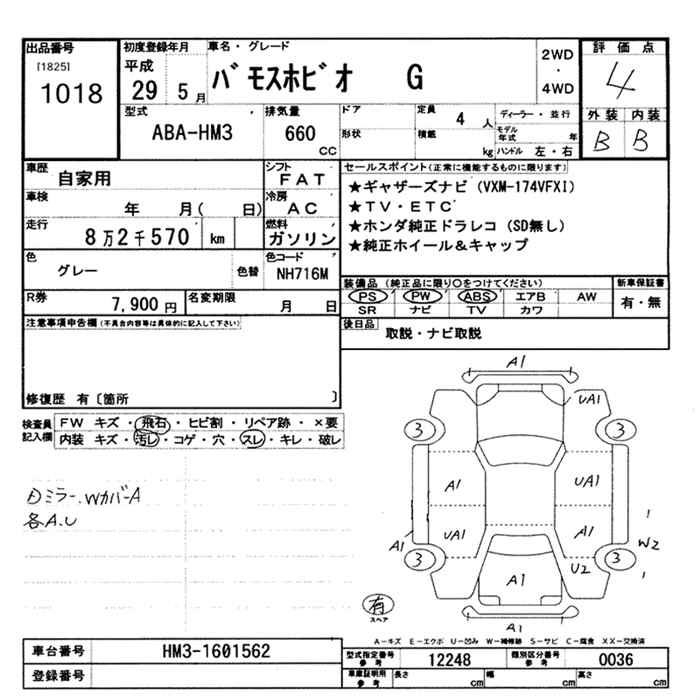 出品番号 初度登録年月 車名・グレード 2WD・4WD 評価点
[1825] 平成
1018 29 5月 バモスホビオ G 4
型式 排気量 ドア 定員 4人 ディーラー・並行 外装 内装
ABA-HM3 660 CC 形状 積載 kg モデル年式 年 B B
ハンドル 左・右
車歴 自家用 シフト FAT セールスポイント(正常に機能するものに限ります)
車検 年 月( 日) 冷房 AC ★ギャザーズナビ (VXM-174VFXI)
★TV・ETC
走行 8万2千570 km 燃料 ガソリン ★ホンダ純正ドラレコ (SD無し)
★純正ホイール&キャップ
色 グレー 色替 色コード NH716M
装備品 (純正品に限り○をつけてください) 新車保証書
R券 7,900円 名変期限 月 日 PS PW ABS エアB AW 有・無
SR ナビ TV カワ
注意事項申告欄(不具合内容等は具体的に記入して下さい) 後日品 取説・ナビ取説
修復歴 有〔箇所 〕
検査員記入欄 FW キズ・飛石・ヒビ割・リペア跡・×要
内装 キズ・汚レ・コゲ・穴・スレ・キレ・破レ
ミラー.Wカバー A
各A.U
A1
UA1
3 3
A1 UA1
UA1 A1
A1 W2
3 3
U2
A1
有
スペア
A1
A-キズ E-エクボ U-凹み W-補修跡 S-サビ C-腐食 XX-交換済
車台番号 HM3-1601562 型式指定番号 参考 12248 類別区分番号 参考 0036
登録番号 車庫証明用 参考 長さ cm 幅 cm 高さ cm